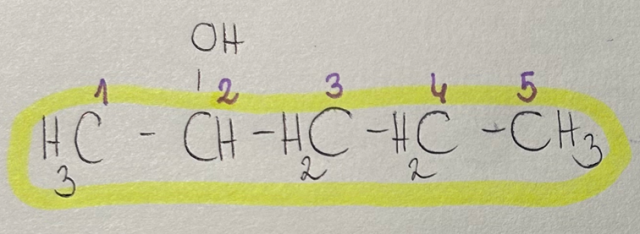 OH
1 2 3 4 5
H₃C - CH - H₂C - H₂C - CH₃